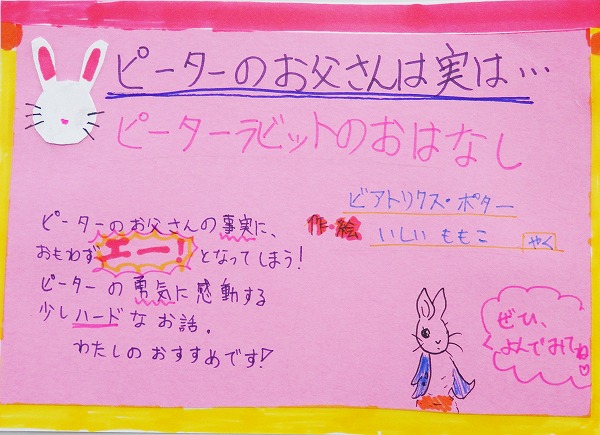 ピーターのお父さんは実は…
ピーターラビットのおはなし
ビアトリクス・ポター
作・絵
いしい ももこ やく
ピーターのお父さんの事実に、
おもわずエー!となってしまう!
ピーターの勇気に感動する
少しハードなお話。
わたしのおすすめです!
ぜひ、
よんでみてね♡